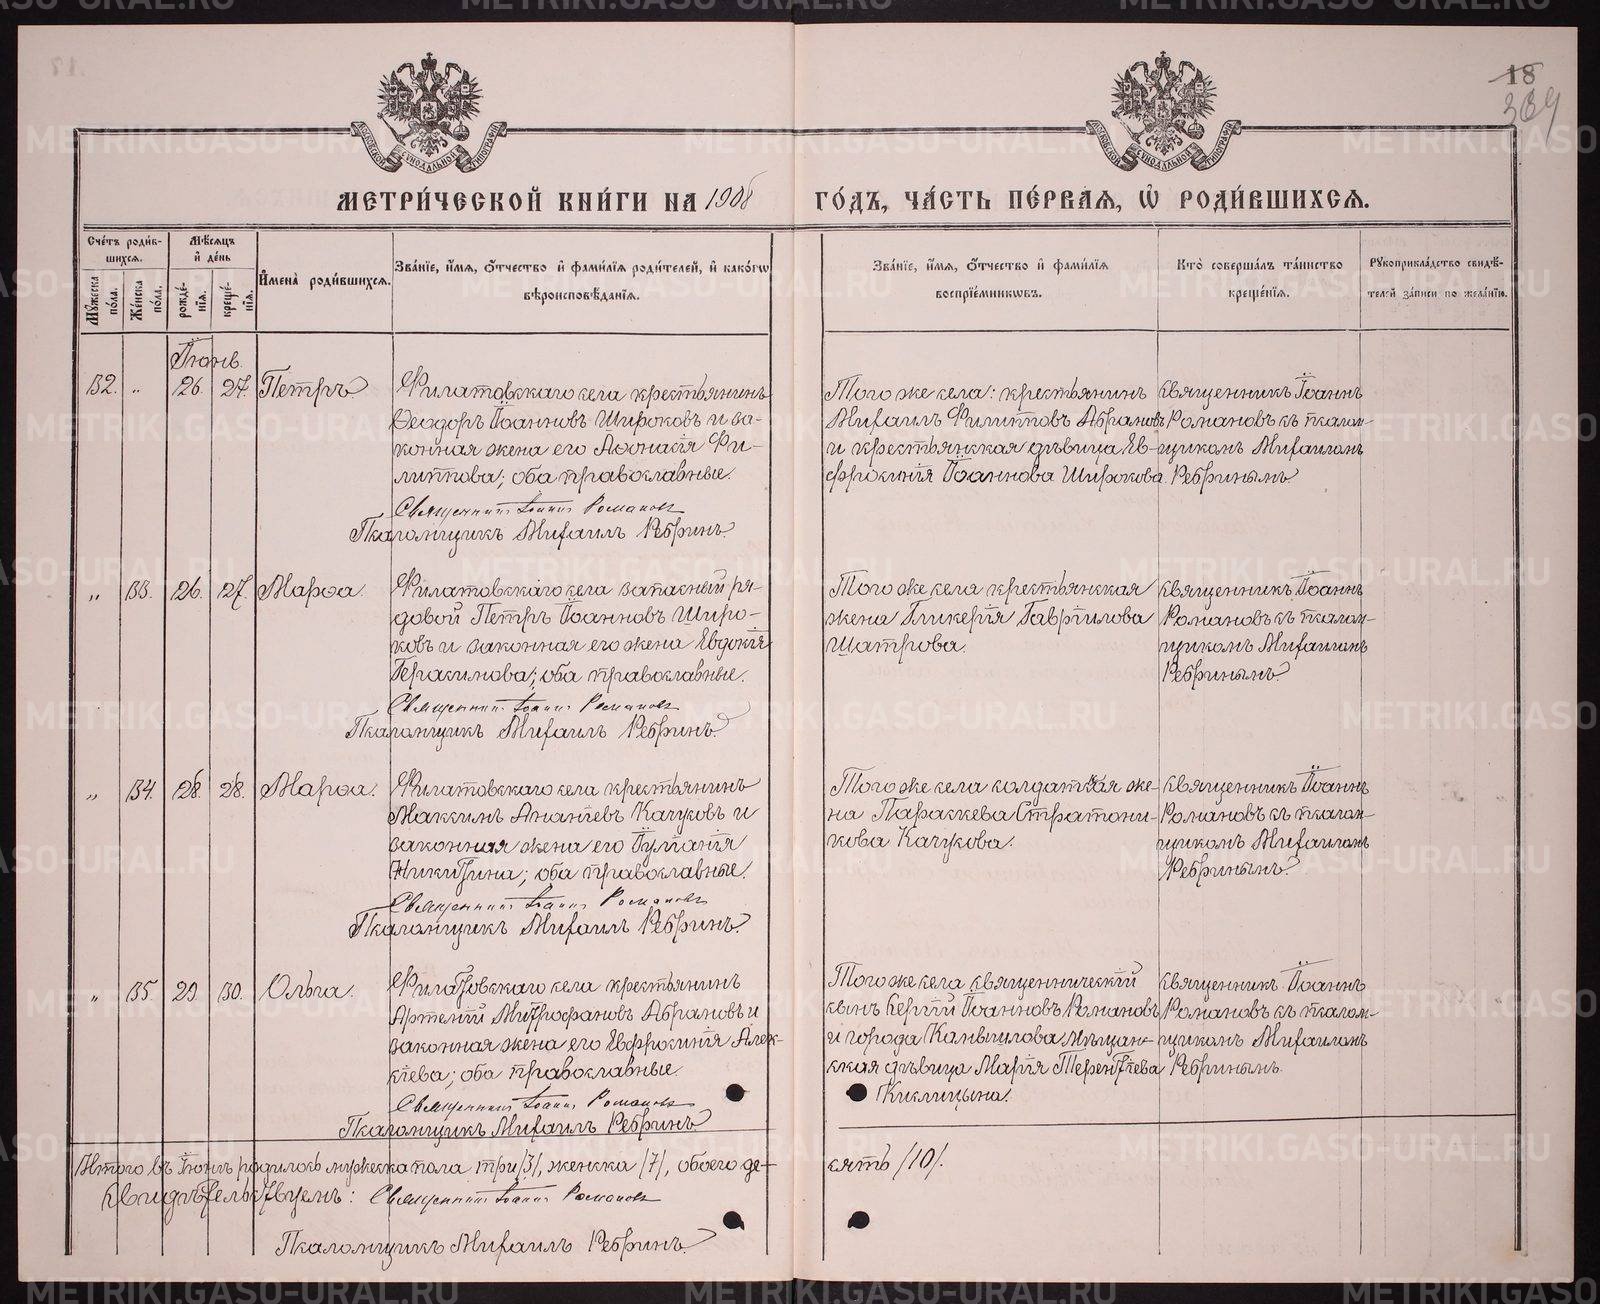 18
369
МЕТРИ́ЧЕСКОЙ КНИ́ГИ НА 1908 ГО́ДЪ, ЧА́СТЬ ПЕ́РВАЯ, Ѡ҆ РОДИ́ВШИХСЯ.
Сче́тъ роди́в-
шихся.
Мѣ́сяцъ
и҆ де́нь
Мꙋ́жеска
по́ла.
Же́нска
по́ла.
рожде́-
нїя.
креще́-
нїя.
И҆мена̀ роди́вшихся.
Зва́нїе, и҆́мя, ѻ҆́тчество и҆ фами́лїя роди́телей, и҆ како́гѡ
вѣроисповѣ́данїя.
Зва́нїе, и҆́мя, ѻ҆́тчество и҆ фами́лїя
воспрїе́мникѡвъ.
Кто̀ соверша́лъ та́инство
креще́нїя.
Рꙋкоприкла́дство свидѣ́-
телей за́писи по жела́нїю.
Іюнь.
32. „ 26. 27. Петръ
Филатовскаго села крестьянинъ
Ѳеодоръ Іоанновъ Широковъ и за-
конная жена его Аѳонасія Фи-
липпова; оба православные.
Священникъ Іоаннъ Романовъ
Псаломщикъ Михаилъ Ребринъ.
Того же села: крестьянинъ
Михаилъ Филипповъ Абрамовъ
и крестьянская дѣвица Ев-
фросинія Іоаннова Широкова.
священникъ Іоаннъ
Романовъ съ псалом-
щикомъ Михаиломъ
Ребринымъ
„ 33. 26. 27. Марѳа.
Филатовскаго села запасный ря-
довой Петръ Іоанновъ Широ-
ковъ и законная его жена Евдокія
Герасимова; оба православные.
Священникъ Іоаннъ Романовъ
Псаломщикъ Михаилъ Ребринъ.
Того же села крестьянская
жена Гликерія Гавріилова
Шатрова.
священникъ Іоаннъ
Романовъ съ псалом-
щикомъ Михаиломъ
Ребринымъ
„ 34. 28. 28. Марѳа.
Филатовскаго села крестьянинъ
Максимъ Ананіевъ Качуковъ и
законная жена его Іуліанія
Никитина; оба православные.
Священникъ Іоаннъ Романовъ
Псаломщикъ Михаилъ Ребринъ.
Того же села солдатская же-
на Параскева Стратони-
кова Качукова.
священникъ Іоаннъ
Романовъ съ псалом-
щикомъ Михаиломъ
Ребринымъ
„ 35. 29 30. Ольга.
Филатовскаго села крестьянинъ
Артемій Митрофановъ Абрамовъ и
законная жена его Евфросинія Алек-
сіева; оба православные.
Священникъ Іоаннъ Романовъ
Псаломщикъ Михаилъ Ребринъ
Того же села священническій
сынъ Сергій Іоанновъ Романовъ
и города Камышлова мѣщан-
ская дѣвица Марія Терентіева
Кислицына.
священникъ Іоаннъ
Романовъ съ псалом-
щикомъ Михаиломъ
Ребринымъ.
Итого въ Іюнѣ родилось мужеска пола три /3/, женска /7/, обоего де-
сять /10/.
Свидѣтельствуемъ: Священникъ Іоаннъ Романовъ
Псаломщикъ Михаилъ Ребринъ